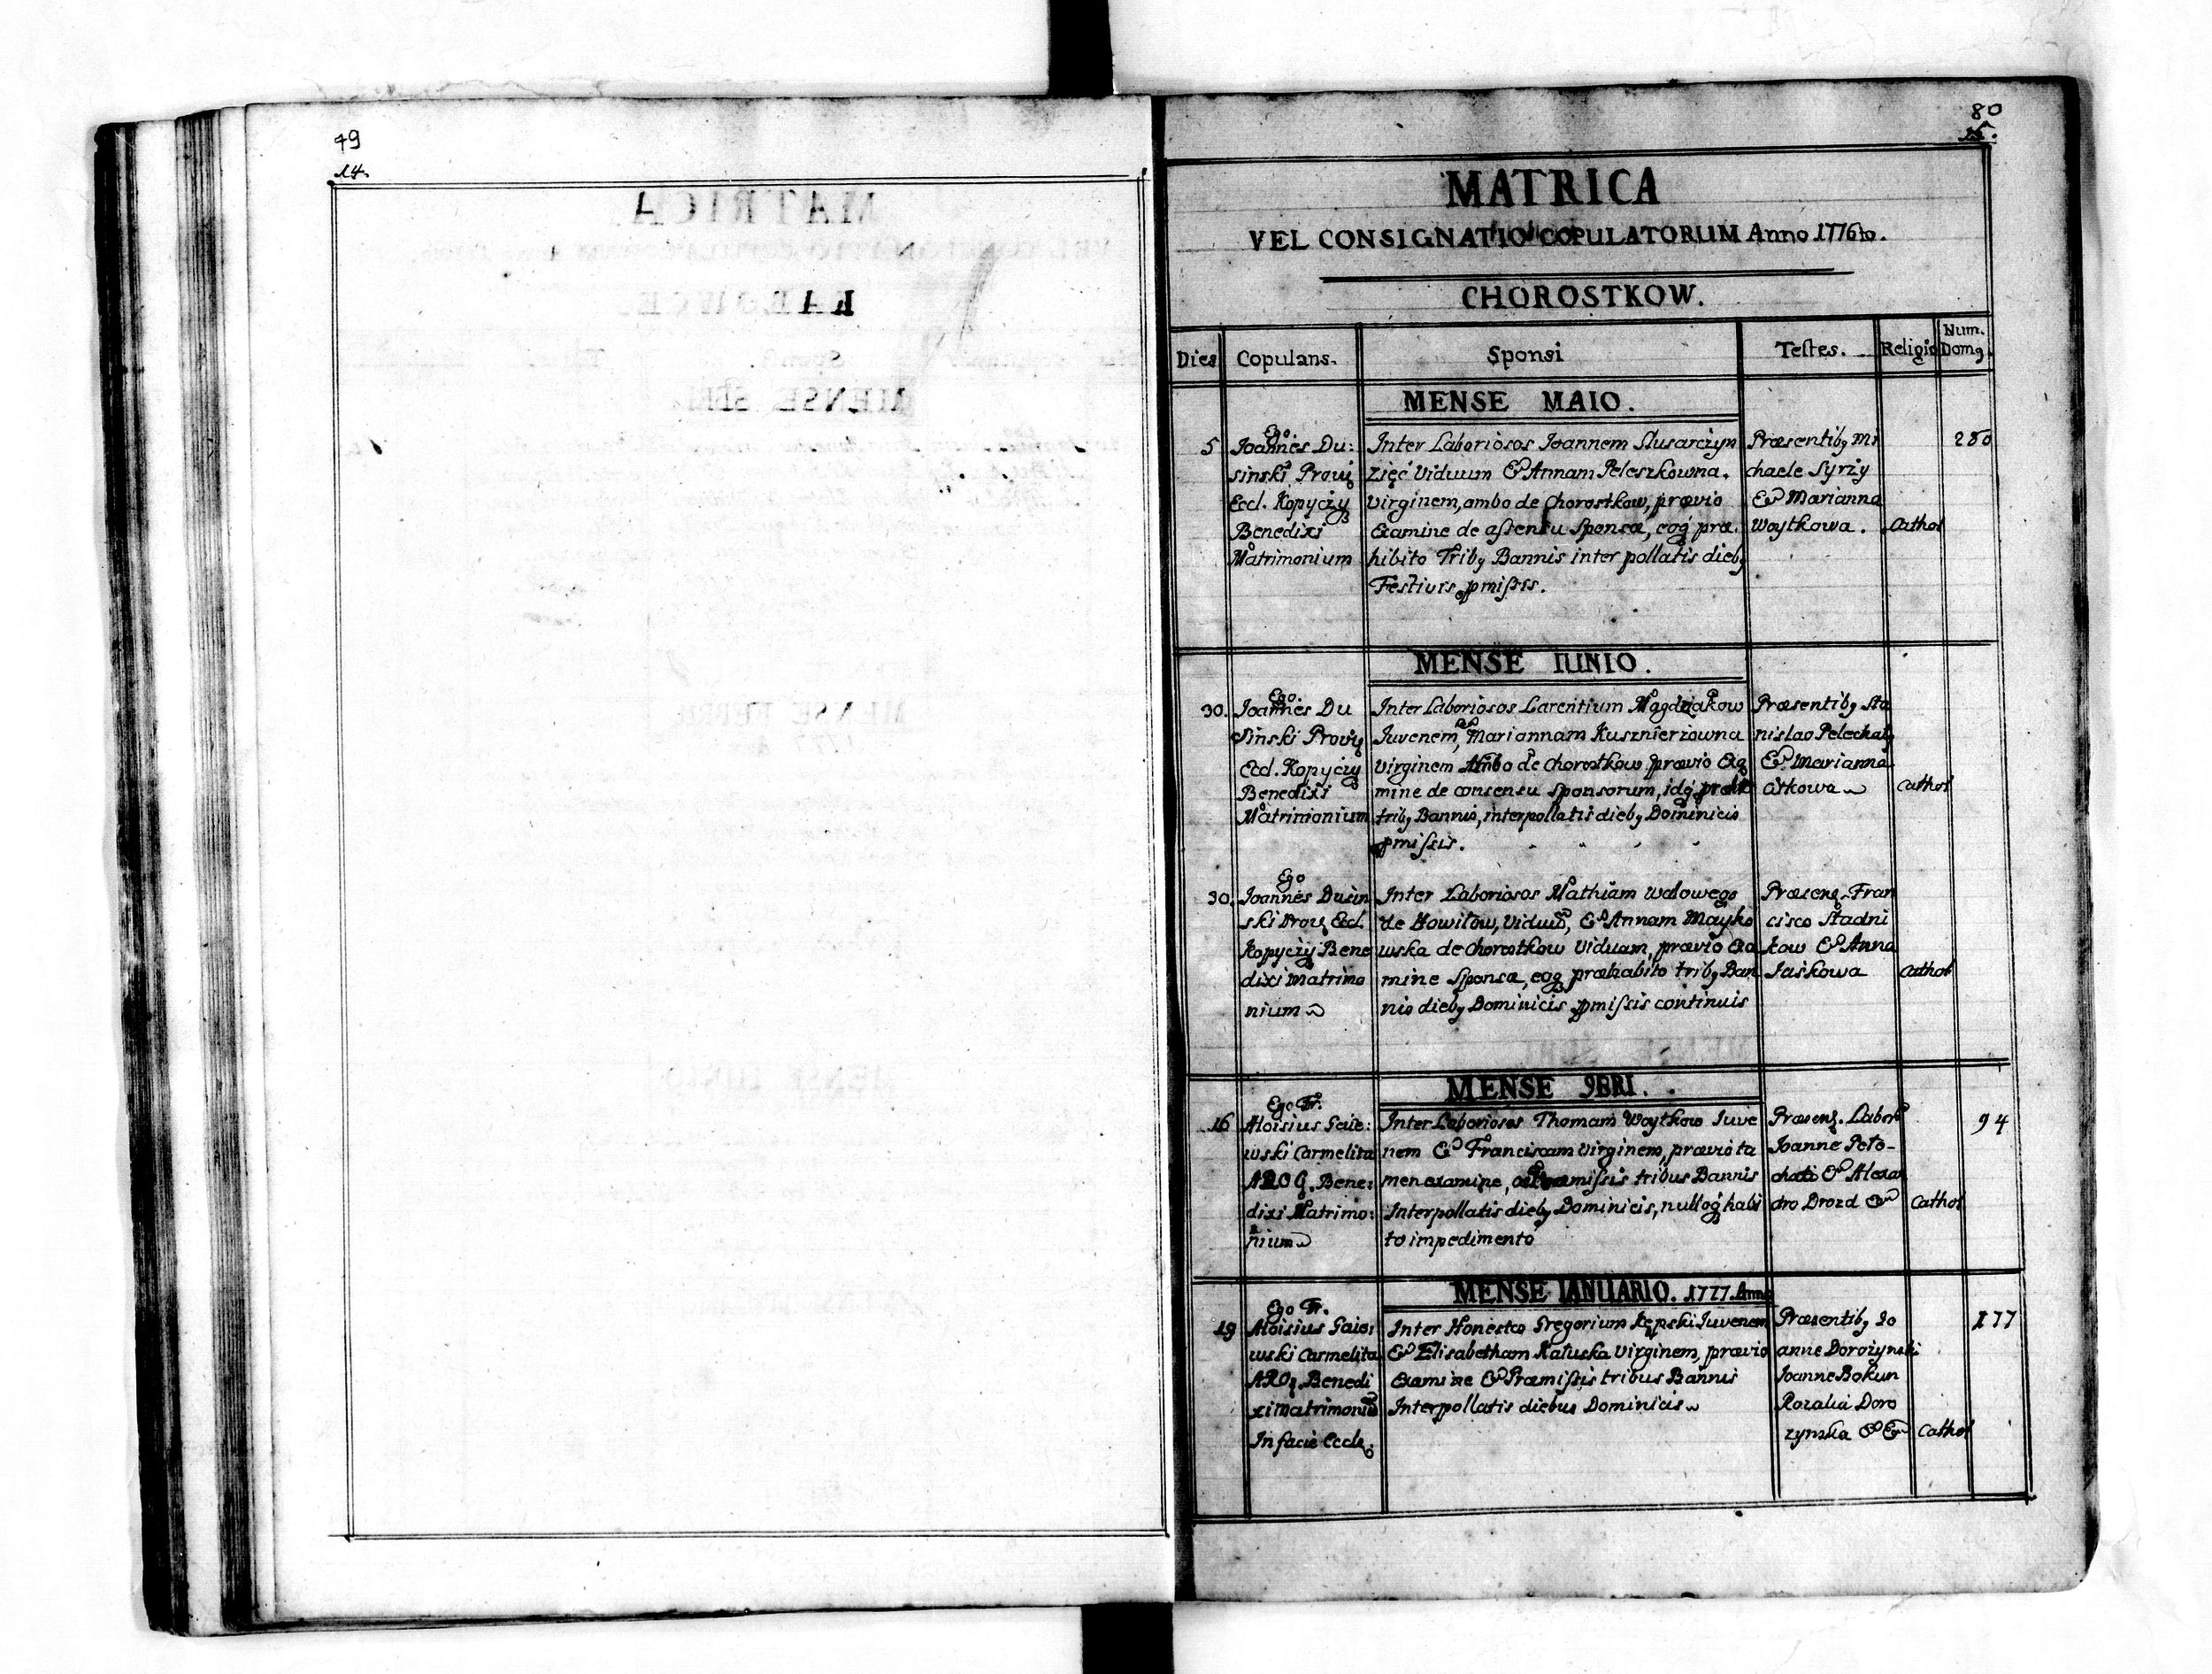 79
14.
80
15.
MATRICA
VEL CONSIGNATIO COPULATORUM Anno 1776to.
CHOROSTKOW.
Dies
Copulans.
Sponsi
Testes.
Religio
Num.
Domq.
MENSE MAIO.
5
Ego
Joannes Du:
sinski Provi
Eccl. Kopyczy
Benedixi
Matrimonium
Inter Laboriosos Joannem Slusarczyn
Zięć Viduum & Annam Peleszkowna.
Virginem, ambo de Chorostkow, prævio
Examine de assensu Sponsæ, eoq præ.
hibito Tribq Bannis inter pollatis diebq
Festivis pmissis.
Præsentibq Mi
chaele Syrży
& Marianna
Woytkowa.
Cathol
280
MENSE IUNIO.
30.
Ego
Joannes Du
sinski Provi
Eccl. Kopyczy
Benedixi
Matrimonium
Inter Laboriosos Larentium Magdziakow
Juvenem, & Mariannam Kusznierzowna
Virginem Ambo de Chorostkow prævio Exa
mine de consensu Sponsorum, idq
tribq Bannis, interpollatis diebq Dominicis
pmissis.
Præsentibq Sta
nislao Pelechaty
& Marianna
Cathol
30.
Ego
Joannes Dusin
ski Prov Eccl.
Kopyczy Bene
dixi Matrimo
nium
Inter Laboriosos Mathiam Walowego
de Howilow, Viduu, & Annam Mayko
wska de Chorostkow Viduam, prævio Exa
mine Sponsæ, eoq præhabito tribq Ban
nis diebq Dominicis pmissis continuis
Præsenq. Fran
cisco Stadni
kow & Anna
Jaskowa
Cathol
MENSE 9BRI.
16
Ego Fr.
Aloisius Gaie:
wski Carmelita
AROq. Bene:
dixi Matrimo:
nium
Inter Laboriosos Thomam Woytkow Juve
nem & Franciscam Virginem, prævio ta
men examine, præmissis tribus Bannis
Interpollatis diebq Dominicis, nulloq habi
to impedimento
Præsenq. Labor
Joanne Pelo-
chati & Alexan
dro Drozd &
Cathol
94
MENSE IANUARIO. 1777 Anno
19
Ego Fr.
Aloisius Gaie:
wski Carmelita
AROq. Benedi
xi Matrimoniu
In facie Eccle.
Inter Honestos Gregorium Kępski Juvenem
& Elisabetham Kaluska Virginem, prævio
Examine & Præmissis tribus Bannis
Interpollatis diebus Dominicis
Præsentibq Jo
anne Dorożynski
Joanne Bokun
Rozalia Doro
zynska &&
Cathol
177